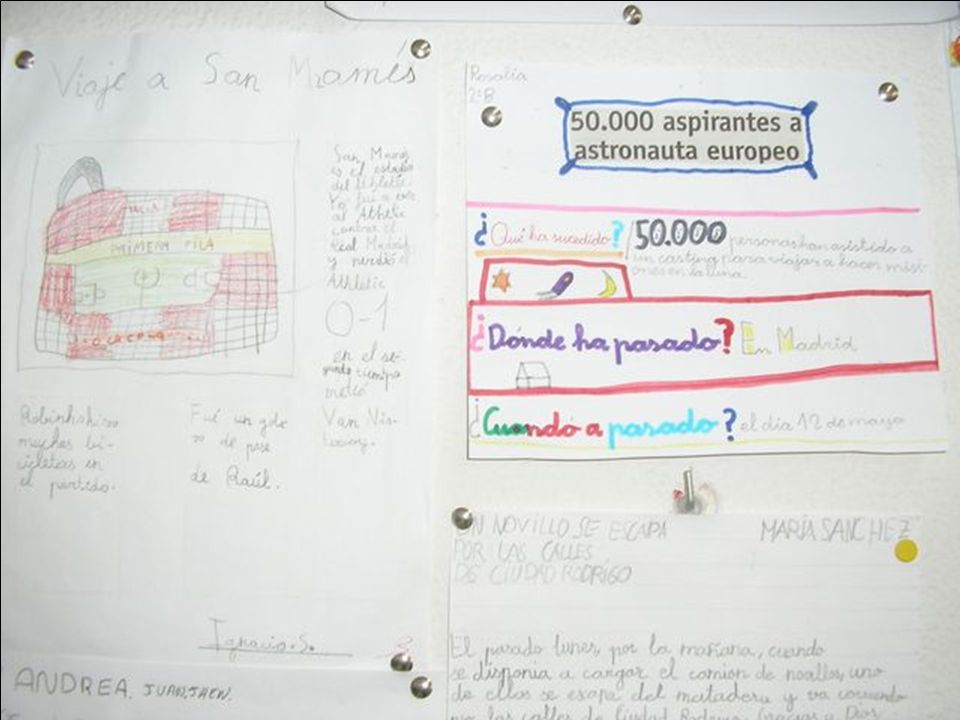 Viaje a San Mamés
San Mamés
es el estadio
del Athletic.
Yo fui a este
al Athletic
contra el
Real Madrid
y perdió el
Athletic
0-1
en el se-
gundo tiempo
metió
Van Nis-
PRIMERA FILA
Robinho hizo
muchas bi-
cicletas en
el partido.
Fué un gola
zo de pase
de Raúl.
Ignacio.S.
ANDREA. JUAN, JAEN.
Rosalia
2ºB
50.000 aspirantes a
astronauta europeo
¿Qué ha sucedido? 50.000 personas han asistido a
un casting para viajar a hacer misi-
ones en la luna.
¿Dónde ha pasado? En Madrid
¿Cuando a pasado? el día 12 de mayo
UN NOVILLO SE ESCAPA
POR LAS CALLES
DE CIUDAD RODRIGO
MARÍA SANCHEZ
El pasado lunes, por la mañana, cuando
se disponia a cargar el camion de novillos, uno
de ellos se exapa del matadero y va corriendo
por las calles de Ciudad Rodrigo. Gracias a Dios